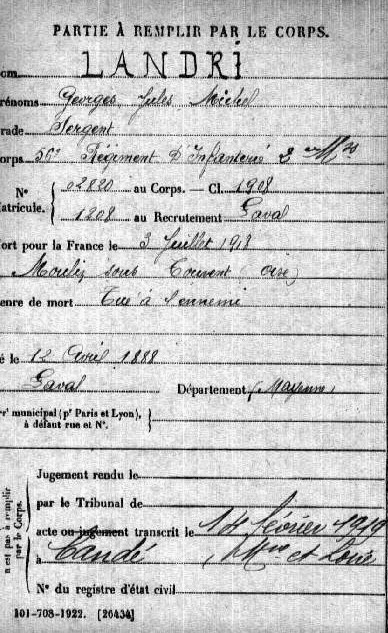 PARTIE À REMPLIR PAR LE CORPS.
om LANDRI
rénoms Georges Jules Michel
rade Sergent
orps 56e Régiment d'Infanterie
N° 02820 au Corps. — Cl. 1908
atricule. 1208 au Recrutement Laval
ort pour la France le 3 Juillet 1918
Moulin sous Touvent (Oise)
enre de mort Tué à l'ennemi
é le 12 Avril 1888
Laval Département (Mayenne)
rr' municipal (pr Paris et Lyon),
à défaut rue et N°.
Jugement rendu le
par le Tribunal de
acte ou jugement transcrit le 14 février 1919
à Candé, Mne et Loire
N° du registre d'état civil
n'est pas à remplir
par le Corps.
101-708-1922. [26434]